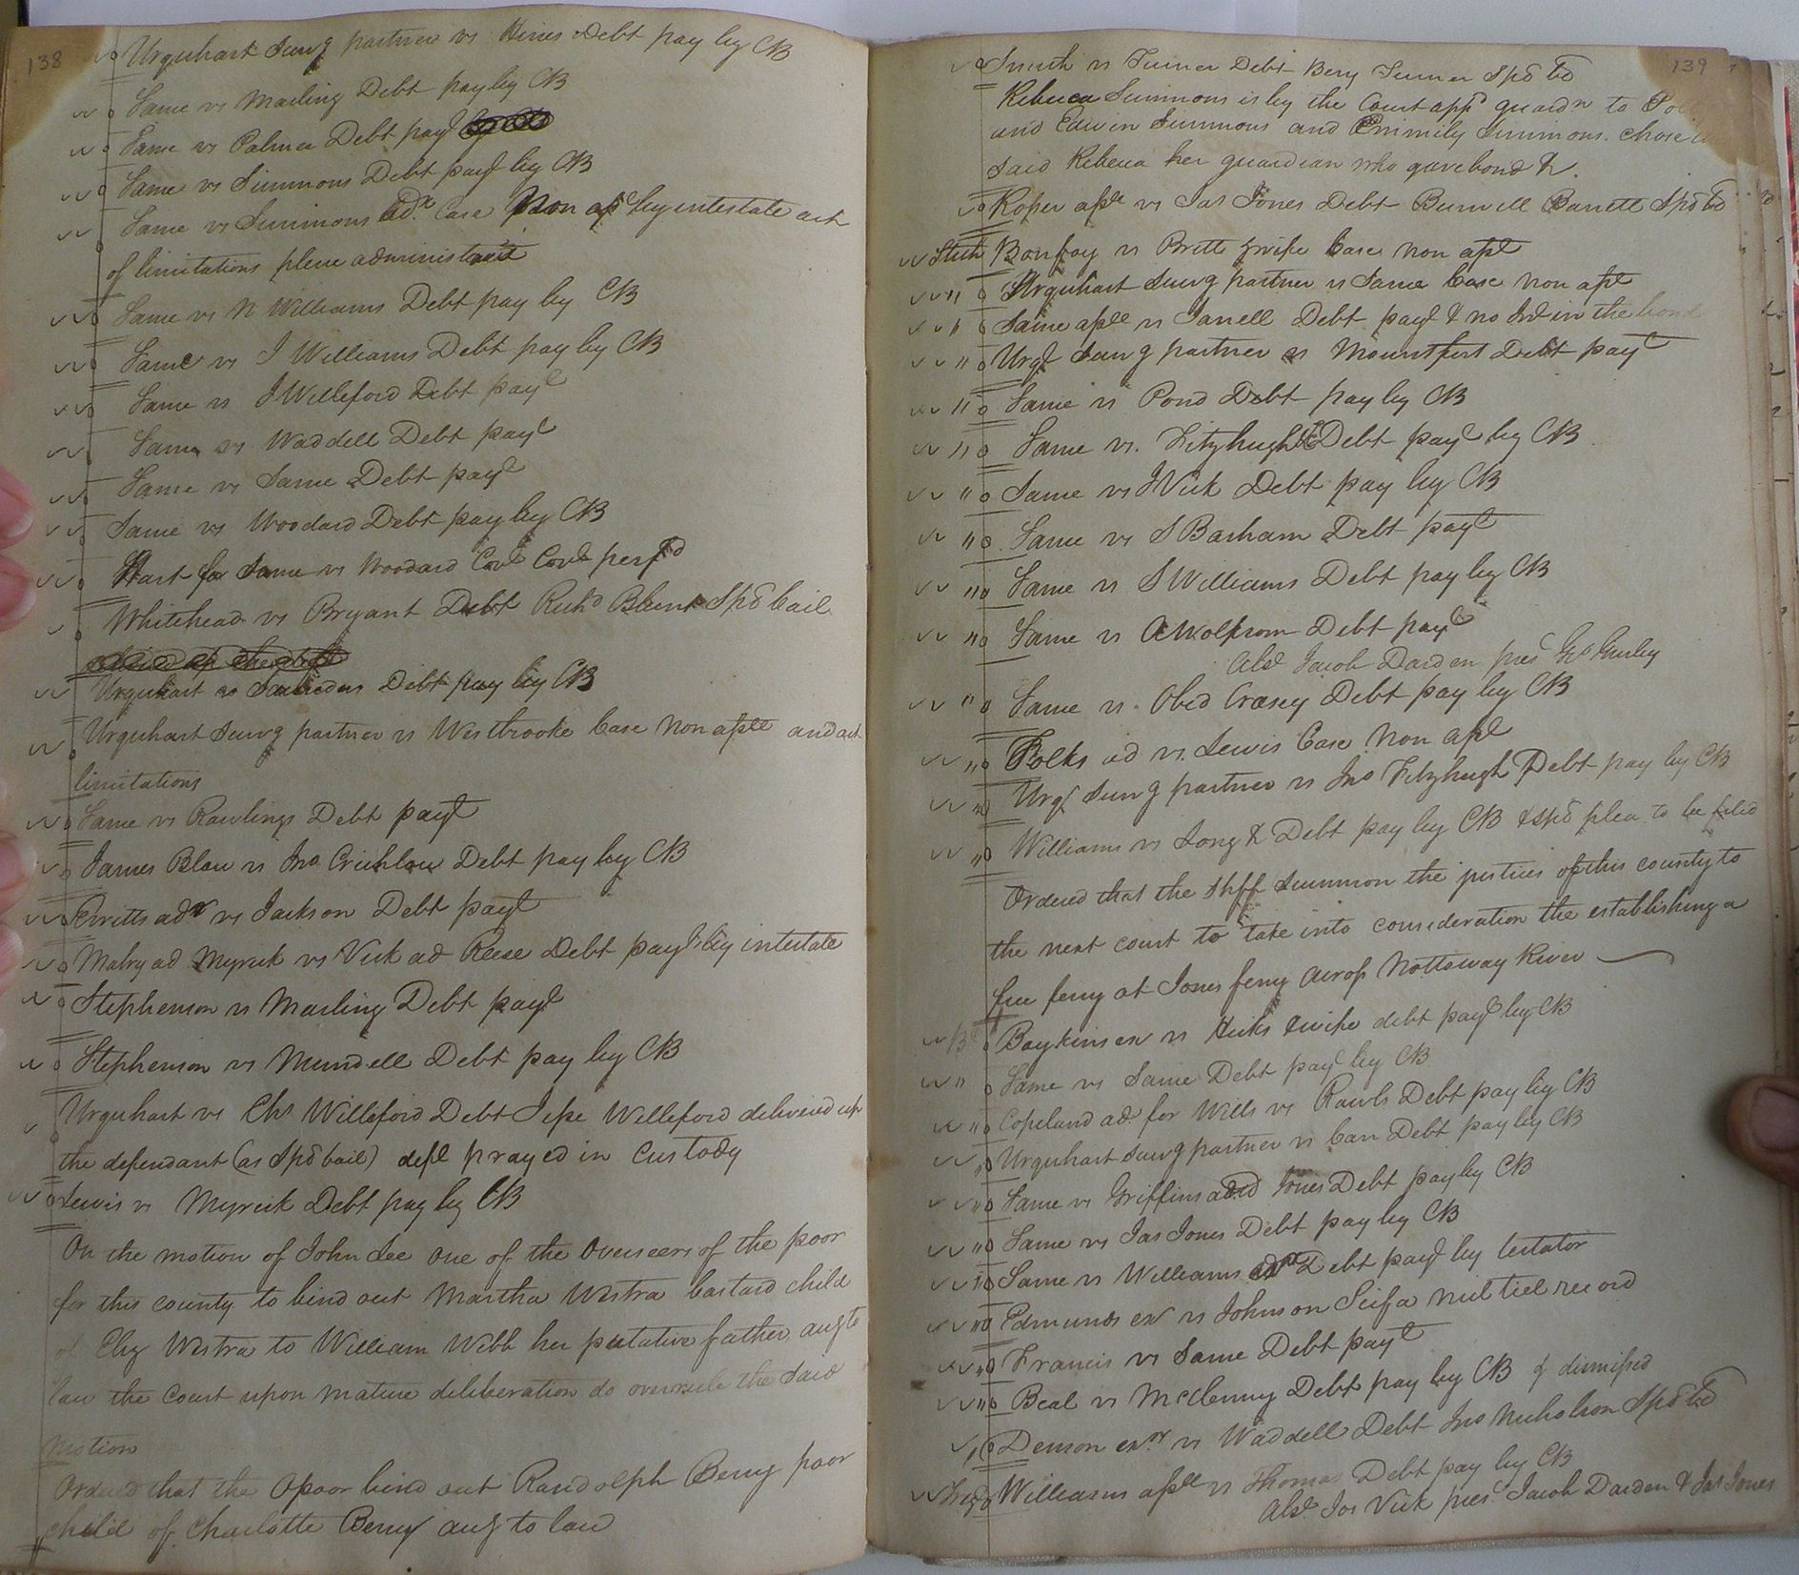 138
Urquhart Survg partner vs Hines Debt pay by CB
Same vs Marling Debt pay by CB
Same vs Palmer Debt payt
Same vs Simmons Debt payt by CB
Same vs Simmons adx Case Non asst by intestate act
of limitations plene administravit
Same vs N Williams Debt pay by CB
Same vs J Williams Debt pay by CB
Same vs J Willeford Debt payt
Same vs Waddell Debt payt
Same vs Same Debt payt
Same vs Woodard Debt pay by CB
Hart for Same vs Woodard Covt Covt perfd
Whitehead vs Bryant Debt Richd Blunt Spd bail
Urquhart vs Debt pay by CB
Urquhart Survg partner vs Westbrooke Case Non asst and act
limitations
Same vs Rawlings Debt payt
James Blow vs Jno Crichlow Debt pay by CB
Britts adr vs Jackson Debt payt
Mabry ad Myrick vs Vick ad Reese Debt payt by intestate
Stephenson vs Marling Debt payt
Stephenson vs Mundell Debt pay by CB
Urquhart vs Chs Willeford Debt Jesse Willeford delivered up
the defendant (as Spd bail) deft prayed in Custody
Lewis vs Myrick Debt pay by CB
On the motion of John Lee one of the Overseers of the poor
for this county to bind out Martha Westra bastard child
of Eliz Westra to William Webb her putative father, aug to
law the court upon mature deliberation do overrule the said
motion
Ordered that the Opoor bind out Randolph Berry poor
child of Charlotte Berry aug to law
139
Smith vs Turner Debt Benj Turner Spd bd
Rebecca Simmons is by the Court appd guardn to
and Edwin Simmons and Emmily Simmons. chose
said Rebecca her guardian who gave bond &.
Roper asse vs Jas Jones Debt Burwell Barrett Spd bd
Bonfoy vs Britt & wife Case non asst
" Urquhart Survg partner vs Same Case non asst
" Same asse vs Janell Debt payt & no Ind in the bond
" Urqt Survg partner vs Mountfort Debt payt
" Same vs Pond Debt pay by CB
" Same vs. Fitzhugh & Debt payt by CB
" Same vs J Vick Debt pay by CB
" Same vs S Barham Debt payt
" Same vs S Williams Debt pay by CB
" Same vs A Wolfrom Debt payt
Abst Jacob Darden pres Gs Gurley
" Same vs. Obed Creasey Debt pay by CB
" Folks ad vs. Lewis Case Non asst
" Urqt Survg partner vs Jno Fitzhugh Debt pay by CB
" Williams vs Long & Debt pay by CB & spd plea to be filed
Ordered that the Shff Summon the justices of this county to
the next court to take into consideration the establishing a
free ferry at Jones ferry across Nottoway River
Boykins ex vs Hicks & wife debt payt by CB
" Same vs Same Debt payt by CB
" Copeland ad. for Wills vs Rawls Debt pay by CB
" Urquhart Survg partner vs Carr Debt pay by CB
" Same vs Griffins ad Jones Debt pay by CB
" Same vs Jas Jones Debt pay by CB
" Same vs Williams exr Debt payt by testator
" Edmunds ex vs Johnson Scifa nul tiel record
" Francis vs Same Debt payt
" Beal vs McClenny Debt pay by CB & dismissed
" Denson exor vs Waddell Debt Jno Nicholson Spd bd
Williams asse vs Thomas Debt pay by CB
Abst Jos Vick pres Jacob Darden & Jas Jones